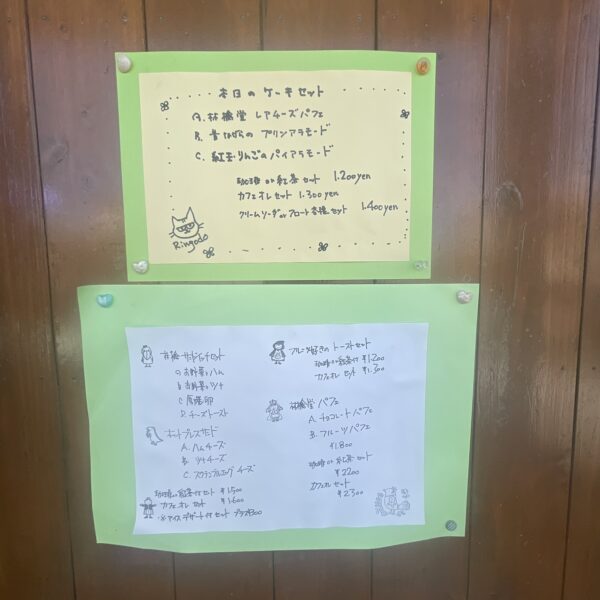 本日のケーキセット
A. 林檎堂 レアチーズパフェ
B. 昔ながらの プリンアラモード
C. 紅玉りんごのパイアラモード
珈琲 or 紅茶 セット 1.200yen
カフェオレセット 1.300yen
クリームソーダ or フロート各種 セット 1.400yen
Ringodo
サンドイッチセット
ハム
ツナ
C.
D. チーズトースト
ホットプレスサンド
A. ハムチーズ
B. ツナチーズ
C. スクランブルエッグ チーズ
珈琲 or 紅茶付セット ¥1.500
カフェオレ セット ¥1.600
※アイスデザート付 セット プラス
フルーツ トーストセット
珈琲 or 紅茶付 ¥1.200
カフェオレ セット ¥1.300
林檎堂 パフェ
A. チョコレートパフェ
B. フルーツパフェ
¥1.800
珈琲 or 紅茶 セット
¥2200
カフェオレ セット
¥2300